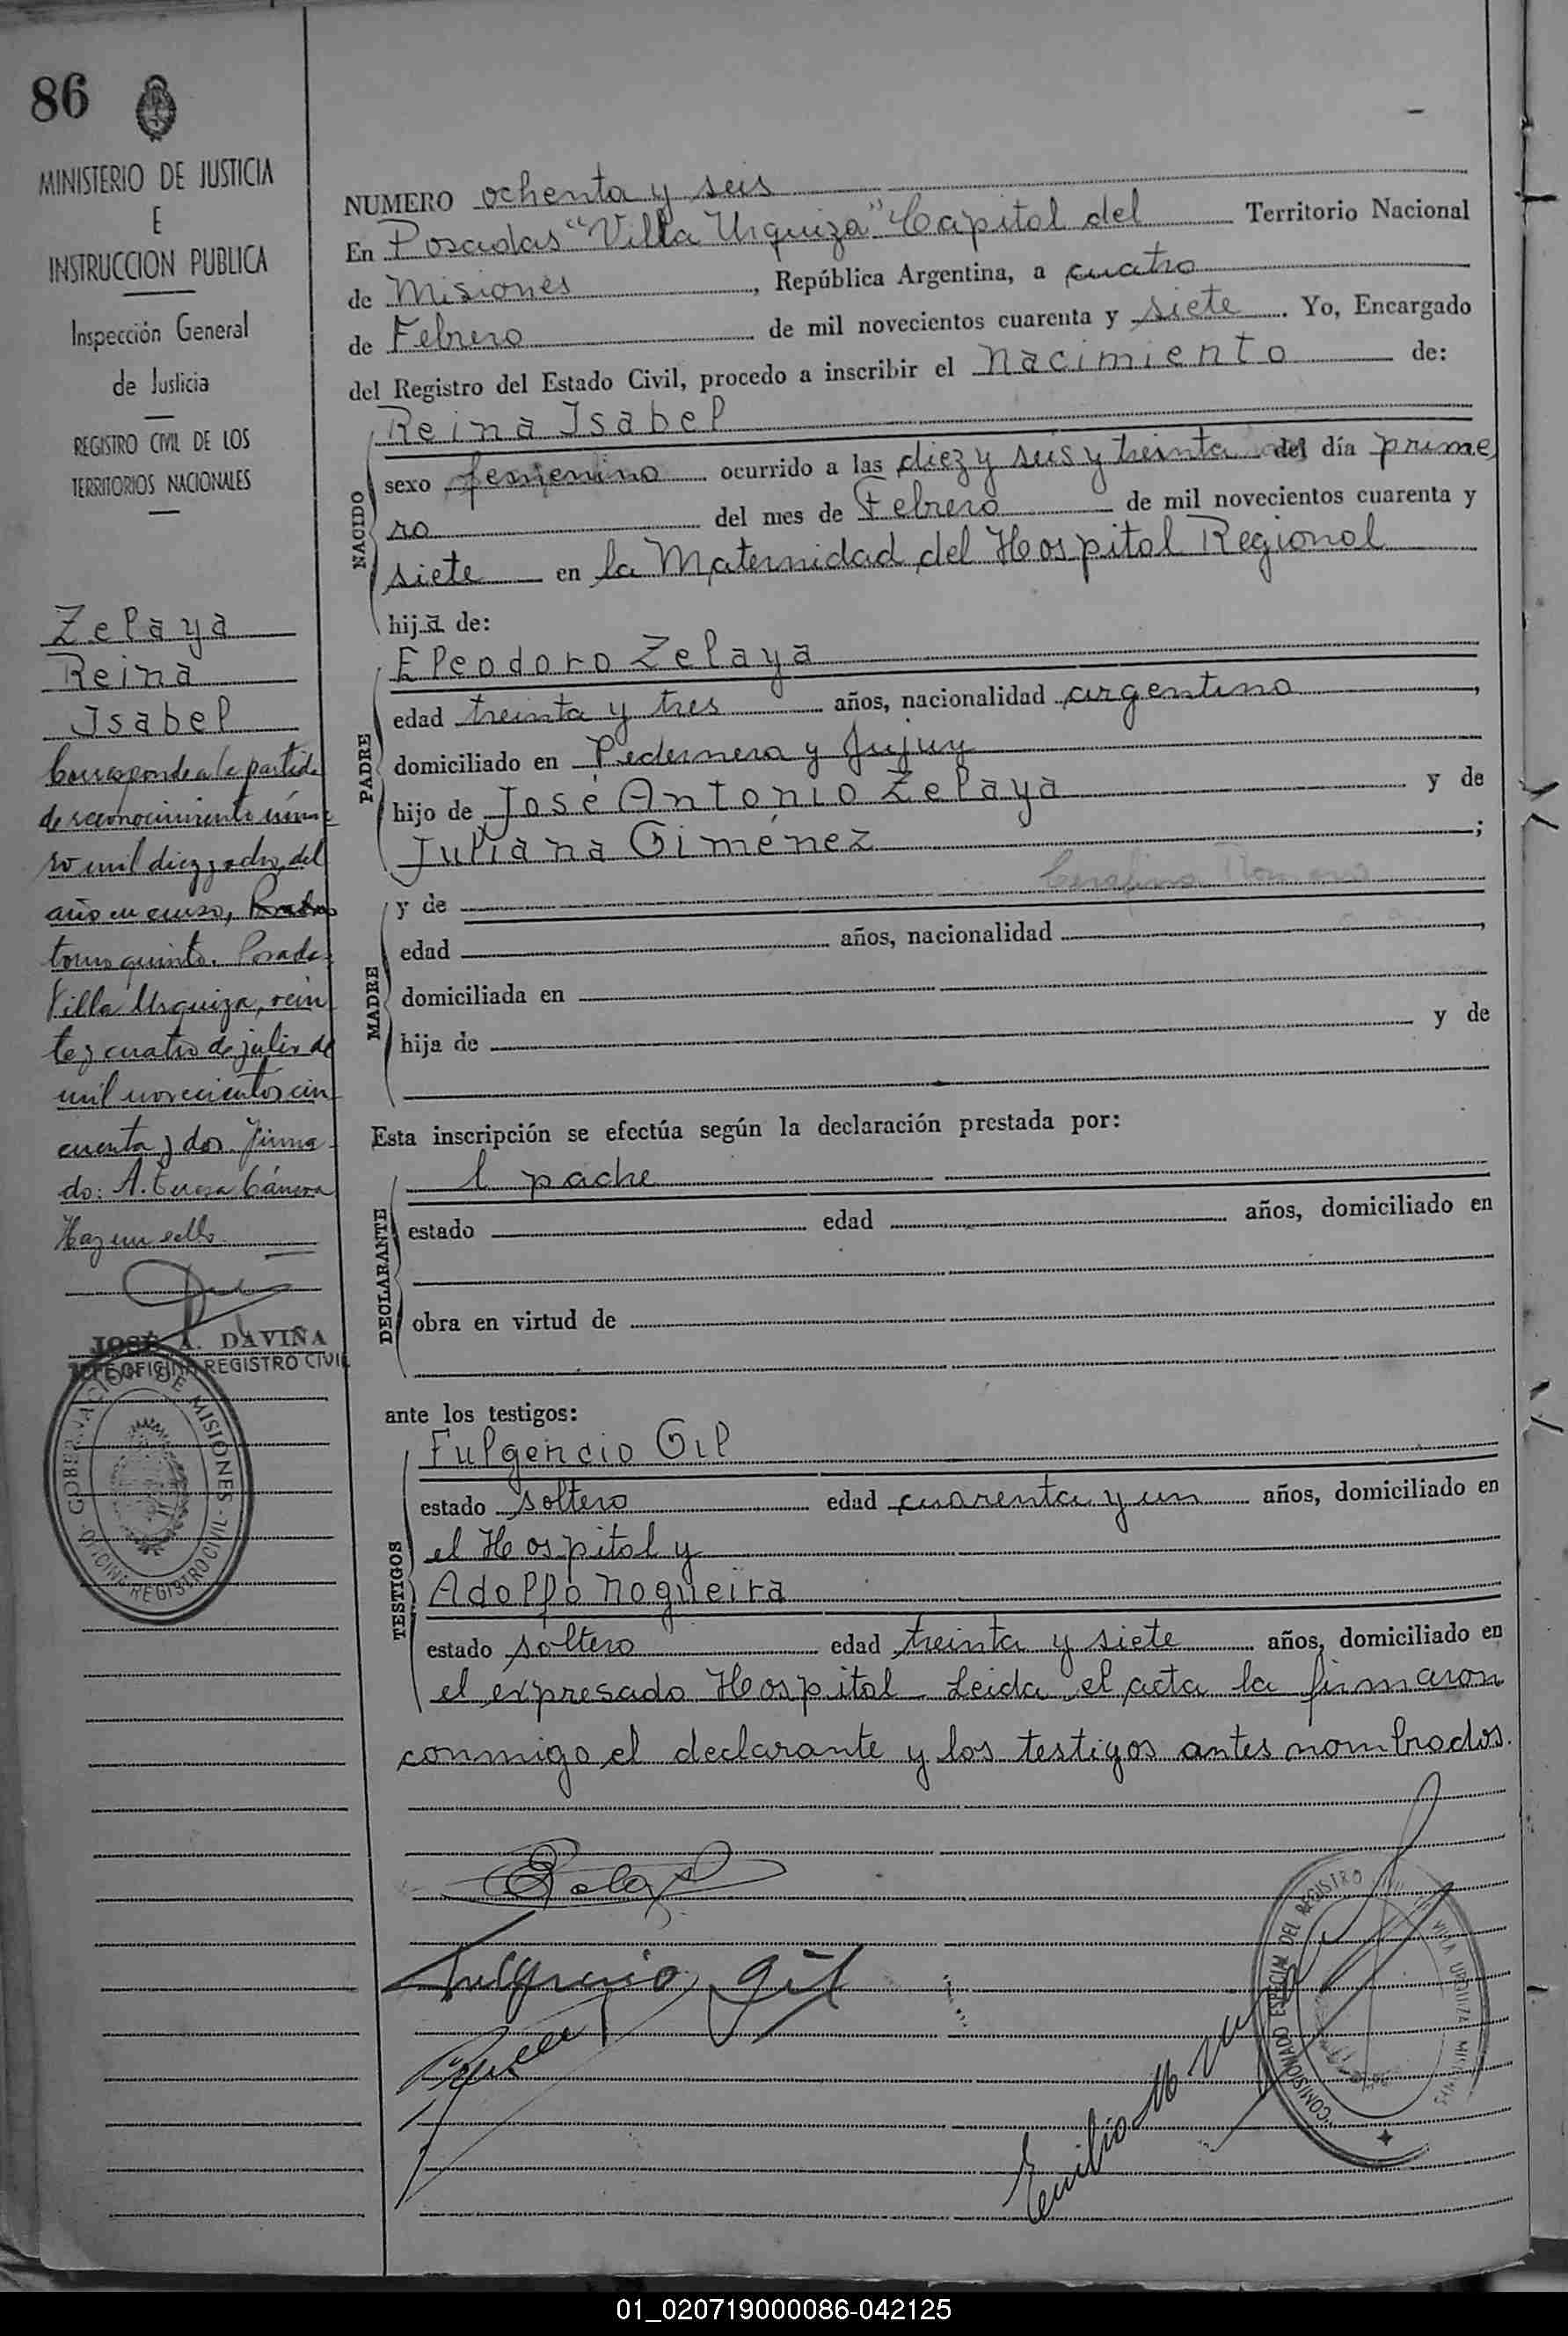 86
MINISTERIO DE JUSTICIA
E
INSTRUCCION PUBLICA
Inspección General
de Justicia
REGISTRO CIVIL DE LOS
TERRITORIOS NACIONALES
Zelaya
Reina
Isabel
Corresponde a la partida
de reconocimiento núme
ro mil diez y ocho, del
año en curso,
tomo quinto. Posadas
Villa Urquiza, vein
te y cuatro de julio de
mil novecientos cin
cuenta y dos. Firma
do: A. Teresa Cánera
Hay un sello.
JOSÉ A. DAVIÑA
JEFE OFICINA REGISTRO CIVIL
GOBERNACIÓN DE MISIONES - OFICINA REGISTRO CIVIL
NUMERO ochenta y seis
En Posadas "Villa Urquiza" Capital del Territorio Nacional
de Misiones, República Argentina, a cuatro
de Febrero de mil novecientos cuarenta y siete. Yo, Encargado
del Registro del Estado Civil, procedo a inscribir el nacimiento de:
NACIDO
Reina Isabel
sexo femenino ocurrido a las diez y seis y treinta del día prime
ro del mes de Febrero de mil novecientos cuarenta y
siete en la Maternidad del Hospital Regional
hija de:
PADRE
Eleodoro Zelaya
edad treinta y tres años, nacionalidad argentino,
domiciliado en Pedernera y Jujuy
hijo de José Antonio Zelaya y de
Juliana Giménez;
MADRE
y de
edad años, nacionalidad,
domiciliada en
hija de y de
Esta inscripción se efectúa según la declaración prestada por:
DECLARANTE
l padre
estado edad años, domiciliado en
obra en virtud de
ante los testigos:
TESTIGOS
Fulgencio Gil
estado soltero edad cuarenta y un años, domiciliado en
el Hospital y
Adolfo Nogueira
estado soltero edad treinta y siete años, domiciliado en
el expresado Hospital. Leida el acta la firmaron
conmigo el declarante y los testigos antes nombrados.
Fulgencio Gil
Emilio
COMISIONADO ESPECIAL DEL REGISTRO CIVIL VILLA URQUIZA MISIONES
01_020719000086-042125